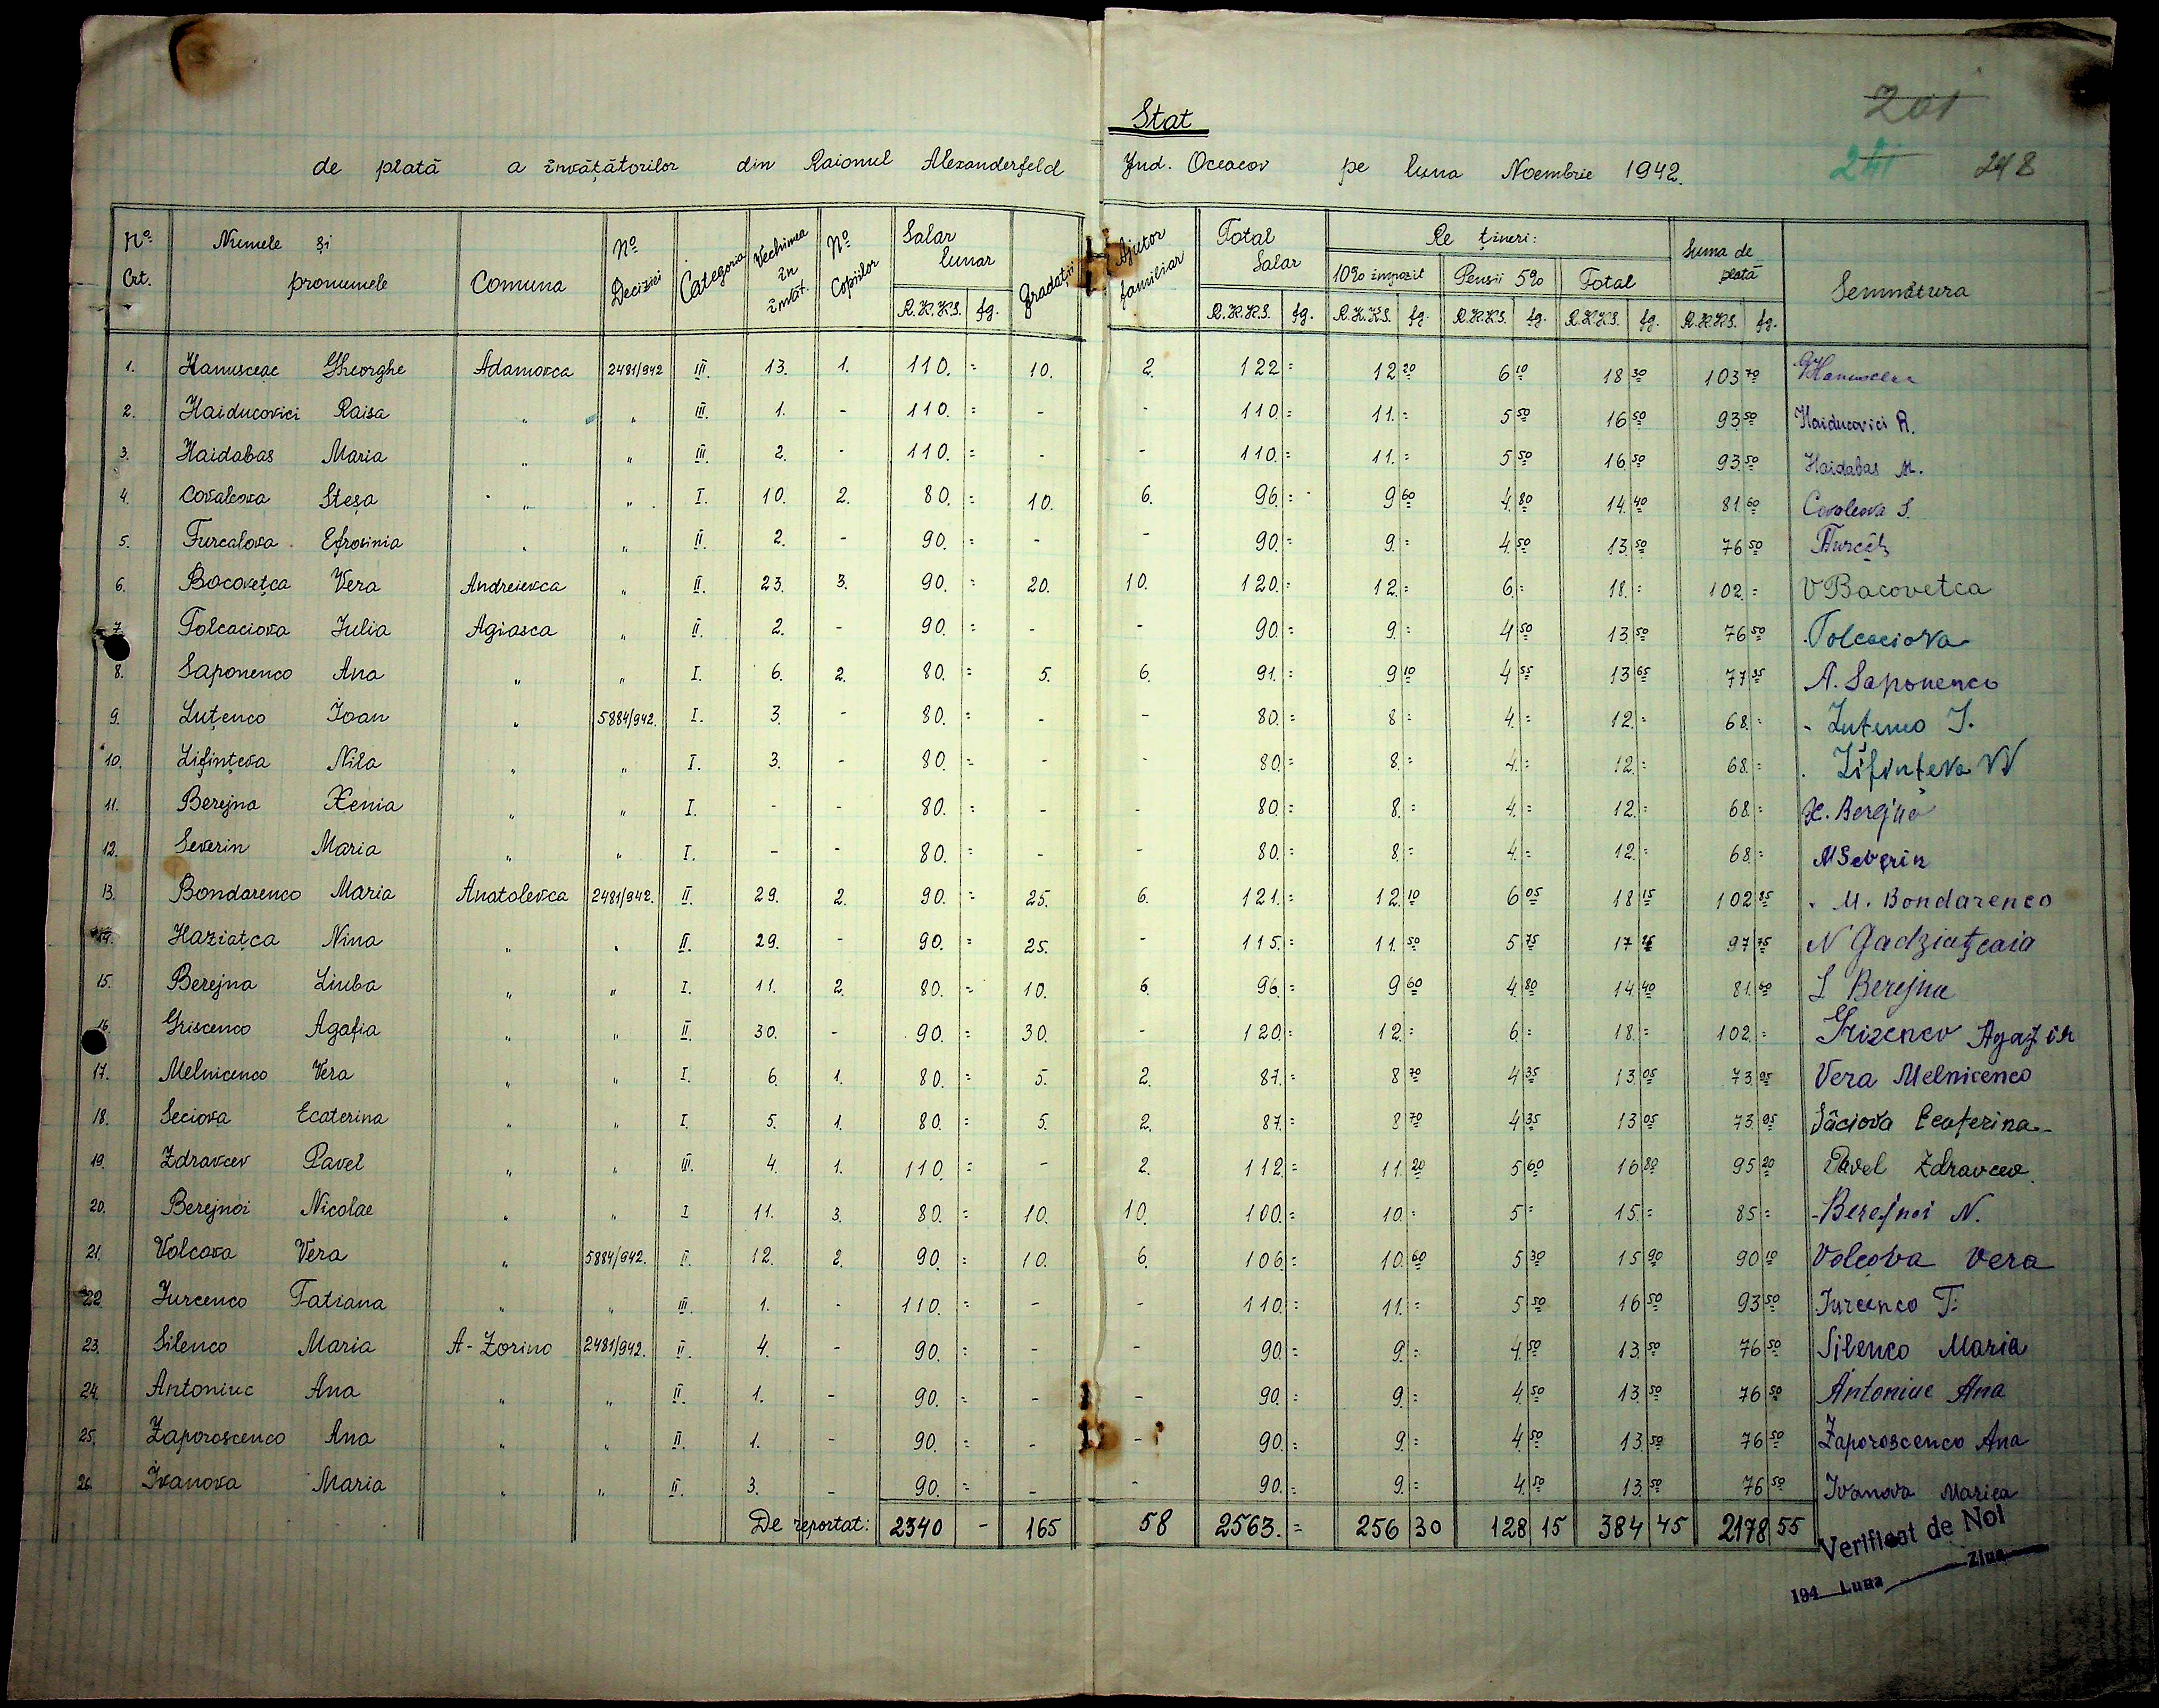 Stat
de plată a învățătorilor din Raionul Alexanderfeld Jud. Oceacov pe luna Noembrie 1942.
201
241 248
Nº Crt. | Numele și pronumele | Comuna | Nº Deciziei | Categoria | Vechimea în învăt. | Nº Copiilor | Salar lunar R.K.K.S. fg. | Gradații | Ajutor familiar | Total Salar R.K.K.S. fg. | Re țineri: 10% impozit R.K.K.S. fg. | Pensii 5% R.K.K.S. fg. | Total R.K.K.S. fg. | Suma de plată R.K.K.S. fg. | Semnătura
1. Hanusceac Gheorghe Adamovca 2481/942 III. 13. 1. 110. = 10. 2. 122 = 12 20 6 10 18 30 103 70
2. Haiducovici Raisa " " III. 1. - 110. = - - 110. = 11. = 5 50 16 50 93 50 Haiducovici R.
3. Haidabas Maria " " III. 2. - 110. = - - 110. = 11. = 5 50 16 50 93 50 Haidabas M.
4. Covalcova Steșa " " I. 10. 2. 80. = 10. 6. 96. = 9 60 4 80 14 40 81 60
5. Furcalova Efrosinia " " II. 2. - 90. = - - 90. = 9. = 4 50 13 50 76 50
6. Bocovețca Vera Andreievca " II. 23. 3. 90. = 20. 10. 120. = 12. = 6. = 18. = 102. = V Bacovetca
7. Tolcaciova Iulia Agiasca " II. 2. - 90. = - - 90. = 9. = 4 50 13 50 76 50 Tolcaciova
8. Saponenco Ana " " I. 6. 2. 80. = 5. 6. 91. = 9 10 4 55 13 65 77 35 A. Saponenco
9. Luțenco Ioan " 5884/942. I. 3. - 80. = - - 80. = 8 = 4. = 12. = 68. =
10. Lifințeva Nila " " I. 3. - 80. = - - 80. = 8. = 4. = 12. = 68. = Lifințeva
11. Berejna Xenia " " I. - - 80. = - - 80. = 8. = 4. = 12. = 68. = X. Berejna
12. Severin Maria " " I. - - 80. = - - 80. = 8. = 4. = 12. = 68. = M Severin
13. Bondarenco Maria Anatolevca 2481/942. II. 29. 2. 90. = 25. 6. 121. = 12. 10 6 05 18 15 102 85 M. Bondarenco
14. Haziatca Nina " " II. 29. - 90. = 25. - 115. = 11. 50 5 75 17 25 97 75 N Gadziațcaia
15. Berejna Liuba " " I. 11. 2. 80. = 10. 6. 96. = 9 60 4 80 14 40 81 60 L Berejna
16. Griscenco Agafia " " II. 30. - 90. = 30. - 120. = 12. = 6. = 18. = 102. =
17. Melnicenco Vera " " I. 6. 1. 80. = 5. 2. 87. = 8 70 4 35 13 05 73 95 Vera Melnicenco
18. Seciova Ecaterina " " I. 5. 1. 80. = 5. 2. 87. = 8 70 4 35 13 05 73 95 Sâciova Ecaterina
19. Zdravcev Pavel " " III. 4. 1. 110. = - 2. 112. = 11. 20 5 60 16 80 95 20 Pavel Zdravcev
20. Berejnoi Nicolae " " I 11. 3. 80. = 10. 10. 100. = 10. = 5 = 15. = 85 = Berejnoi N.
21. Volcova Vera " 5884/942. II. 12. 2. 90. = 10. 6. 106. = 10. 60 5 30 15 90 90 10 Volcova Vera
22. Jurcenco Tatiana " " III. 1. - 110. = - - 110. = 11. = 5 50 16 50 93 50 Jurcenco T.
23. Silenco Maria A-Zorino 2481/942. II. 4. - 90. = - - 90. = 9. = 4 50 13 50 76 50 Silenco Maria
24. Antoniuc Ana " " II. 1. - 90. = - - 90. = 9. = 4 50 13 50 76 50 Antoniuc Ana
25. Zaporoscenco Ana " " II. 1. - 90. = - - 90. = 9. = 4 50 13 50 76 50 Zaporoscenco Ana
26. Ivanova Maria " " II. 3. - 90. = - - 90. = 9. = 4 50 13 50 76 50 Ivanova Mariea
De reportat: 2340 - 165 58 2563. = 256 30 128 15 384 45 2178 55
Verificat de Noi
194 Luna Ziua